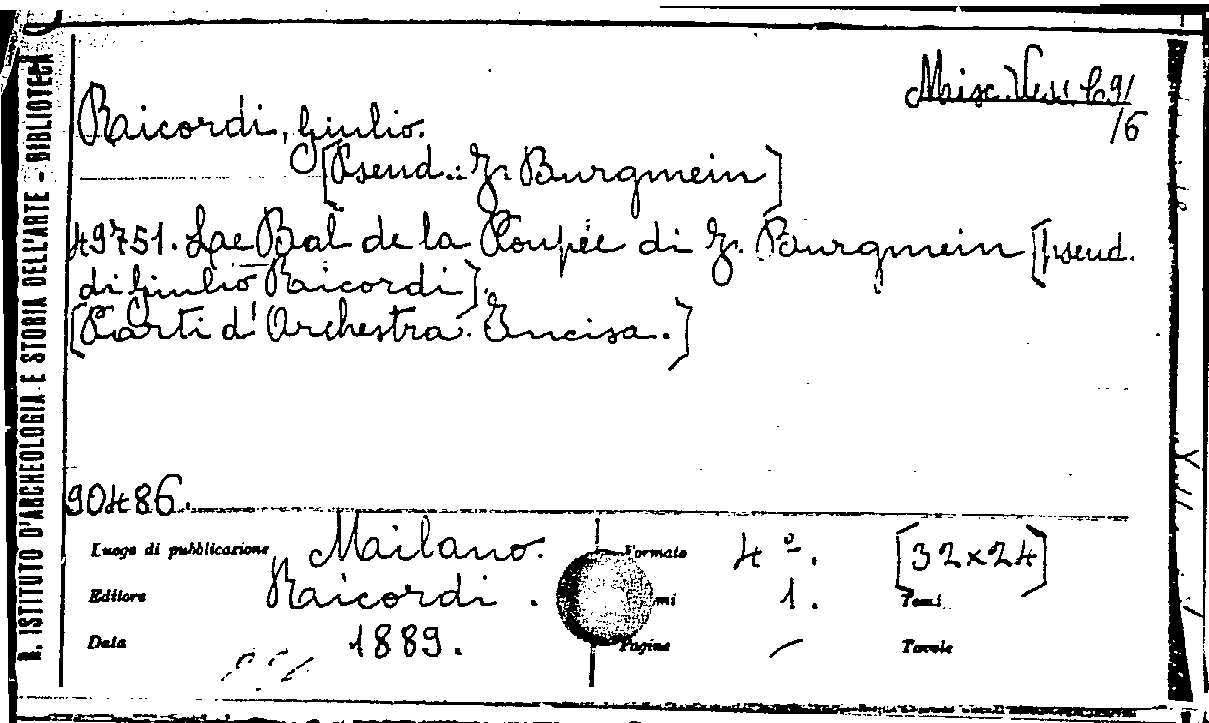 R. ISTITUTO D'ARCHEOLOGIA E STORIA DELL'ARTE - BIBLIOTECA
Misc. Vess. 69/
/6
Ricordi, Giulio.
[Pseud.: J. Burgmein]
49751. Le Bal de la Poupée di J. Burgmein [pseud.
di Giulio Ricordi].
[Parti d'Orchestra. Incisa.]
90486.
Luogo di pubblicazione Milano. Formato 4º. [32x24]
Editore Ricordi. mi 1. Tomi
Data 1889. Pagine Tavole